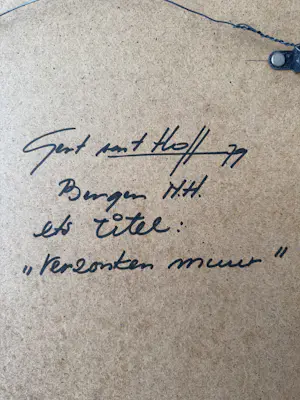 Gert van't Hoff 79
Bergen N.H.
ets titel:
„Verzonken muur"